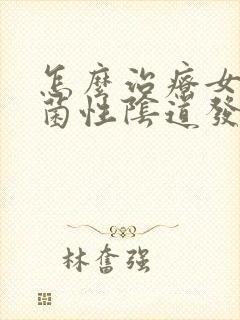 怎麼治療女
菌性陰道發
林奮强